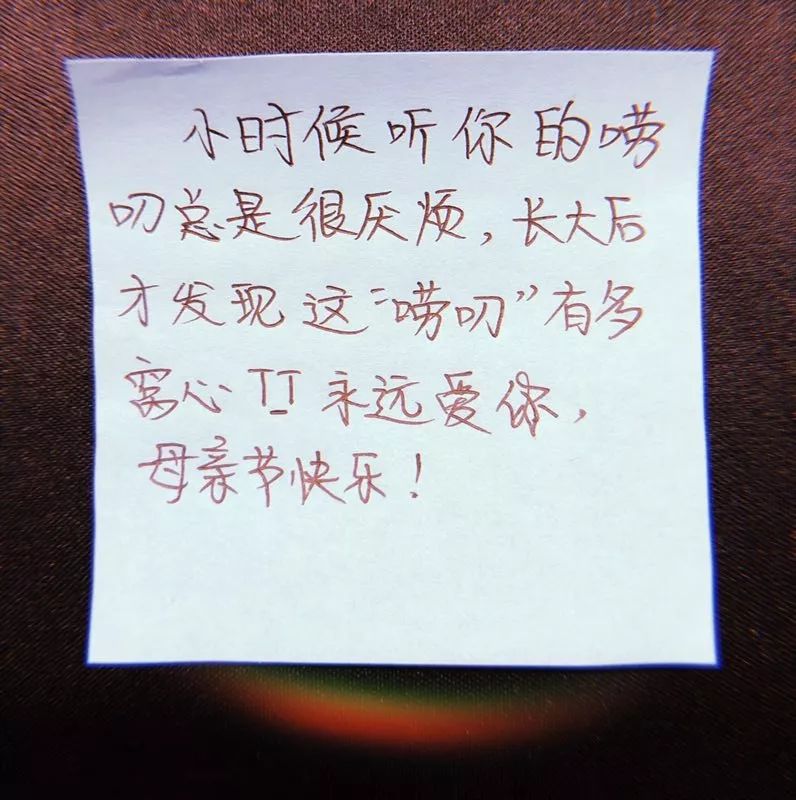 小时候听你的唠
叨总是很厌烦，长大后
才发现这“唠叨”有多
窝心 T_T 永远爱你，
母亲节快乐！